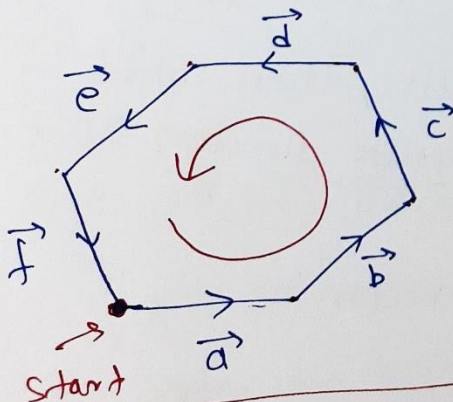 d⃗
e⃗
c⃗
f⃗
b⃗
a⃗
start